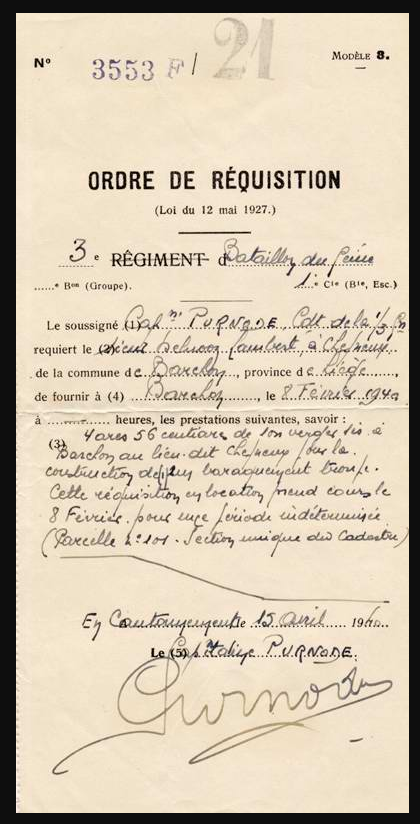 Nº 3553 F / 21 MODÈLE 8.
ORDRE DE RÉQUISITION
(Loi du 12 mai 1927.)
3 e RÉGIMENT d Bataillon du Génie
......e Bon (Groupe). 1 e Cie (Bie, Esc.)
Le soussigné (1) Cap ne PURNODE, Cdt de la 1/3 Gn
requiert le (2) sieur Lambert, à Cheneux
de la commune de Barchon, province de Liége
de fournir à (4) Barchon, le 8 Février 1940
à ............ heures, les prestations suivantes, savoir :
(3) 4 ares 56 centiare de son verger sis à
Barchon au lieu-dit Cheneux pour la
construction de baraquement troupe.
Cette réquisition en location prend cours le
8 Février pour une période indéterminée
(Parcelle nº 101. Section unique du Cadastre)
En Cantonnement le 15 avril 1940.
Le (5) Capitaine PURNODE.
Purnode